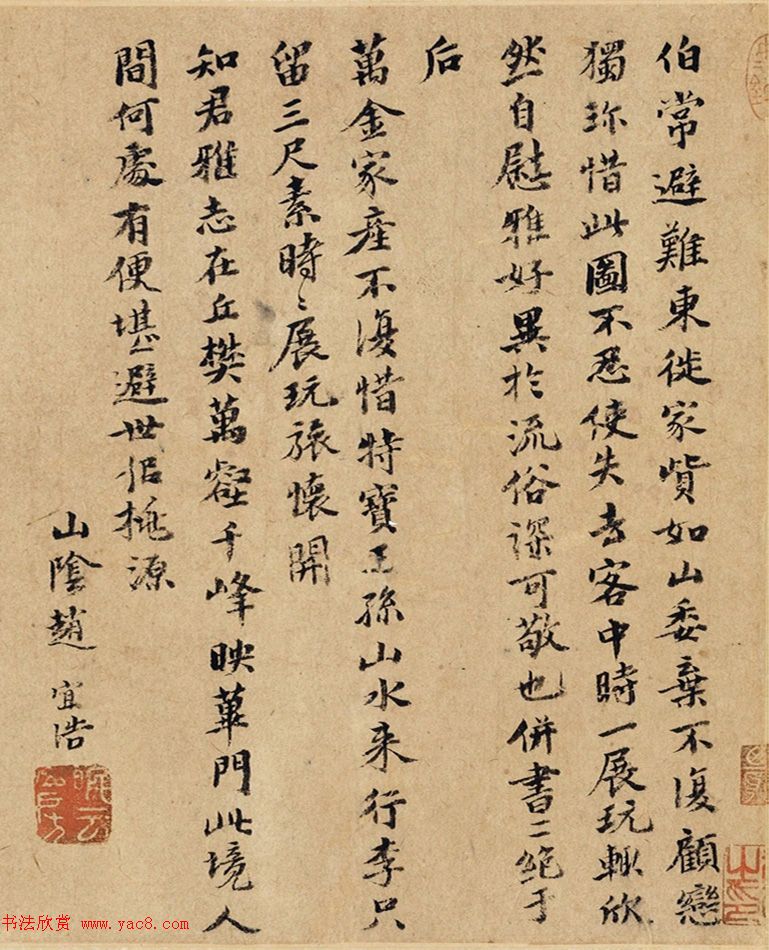 伯常避難東徙家貲如山委棄不復顧戀
獨珎惜此圖不忍使失去客中時一展玩輙欣
然自慰雅好異於流俗深可敬也併書二絶于
后
萬金家産不復惜特寶王孫山水来行李只
留三尺素時〻展玩旅懷開
知君雅志在丘樊萬壑千峰映蓽門此境人
間何處有便堪避世侣桃源
山陰趙宜浩
书法欣赏 www.yac8.com